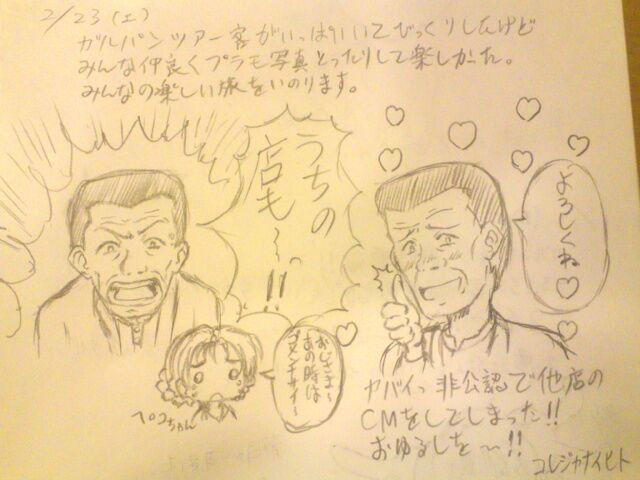 2/23(土)
ガルパンツアー客がいっぱいいてびっくりしたけど
みんな仲良くプラモ写真とったりして楽しかった。
みんなの楽しい旅をいのります。
うちの
店も〜っ!!
よろしくね
おじさま〜
あの時は
ゴメンナサイ〜
ペコちゃん
ヤバイっ 非公認で他店の
CMをしてしまった!!
おゆるしを〜!!
コレジャナイヒト